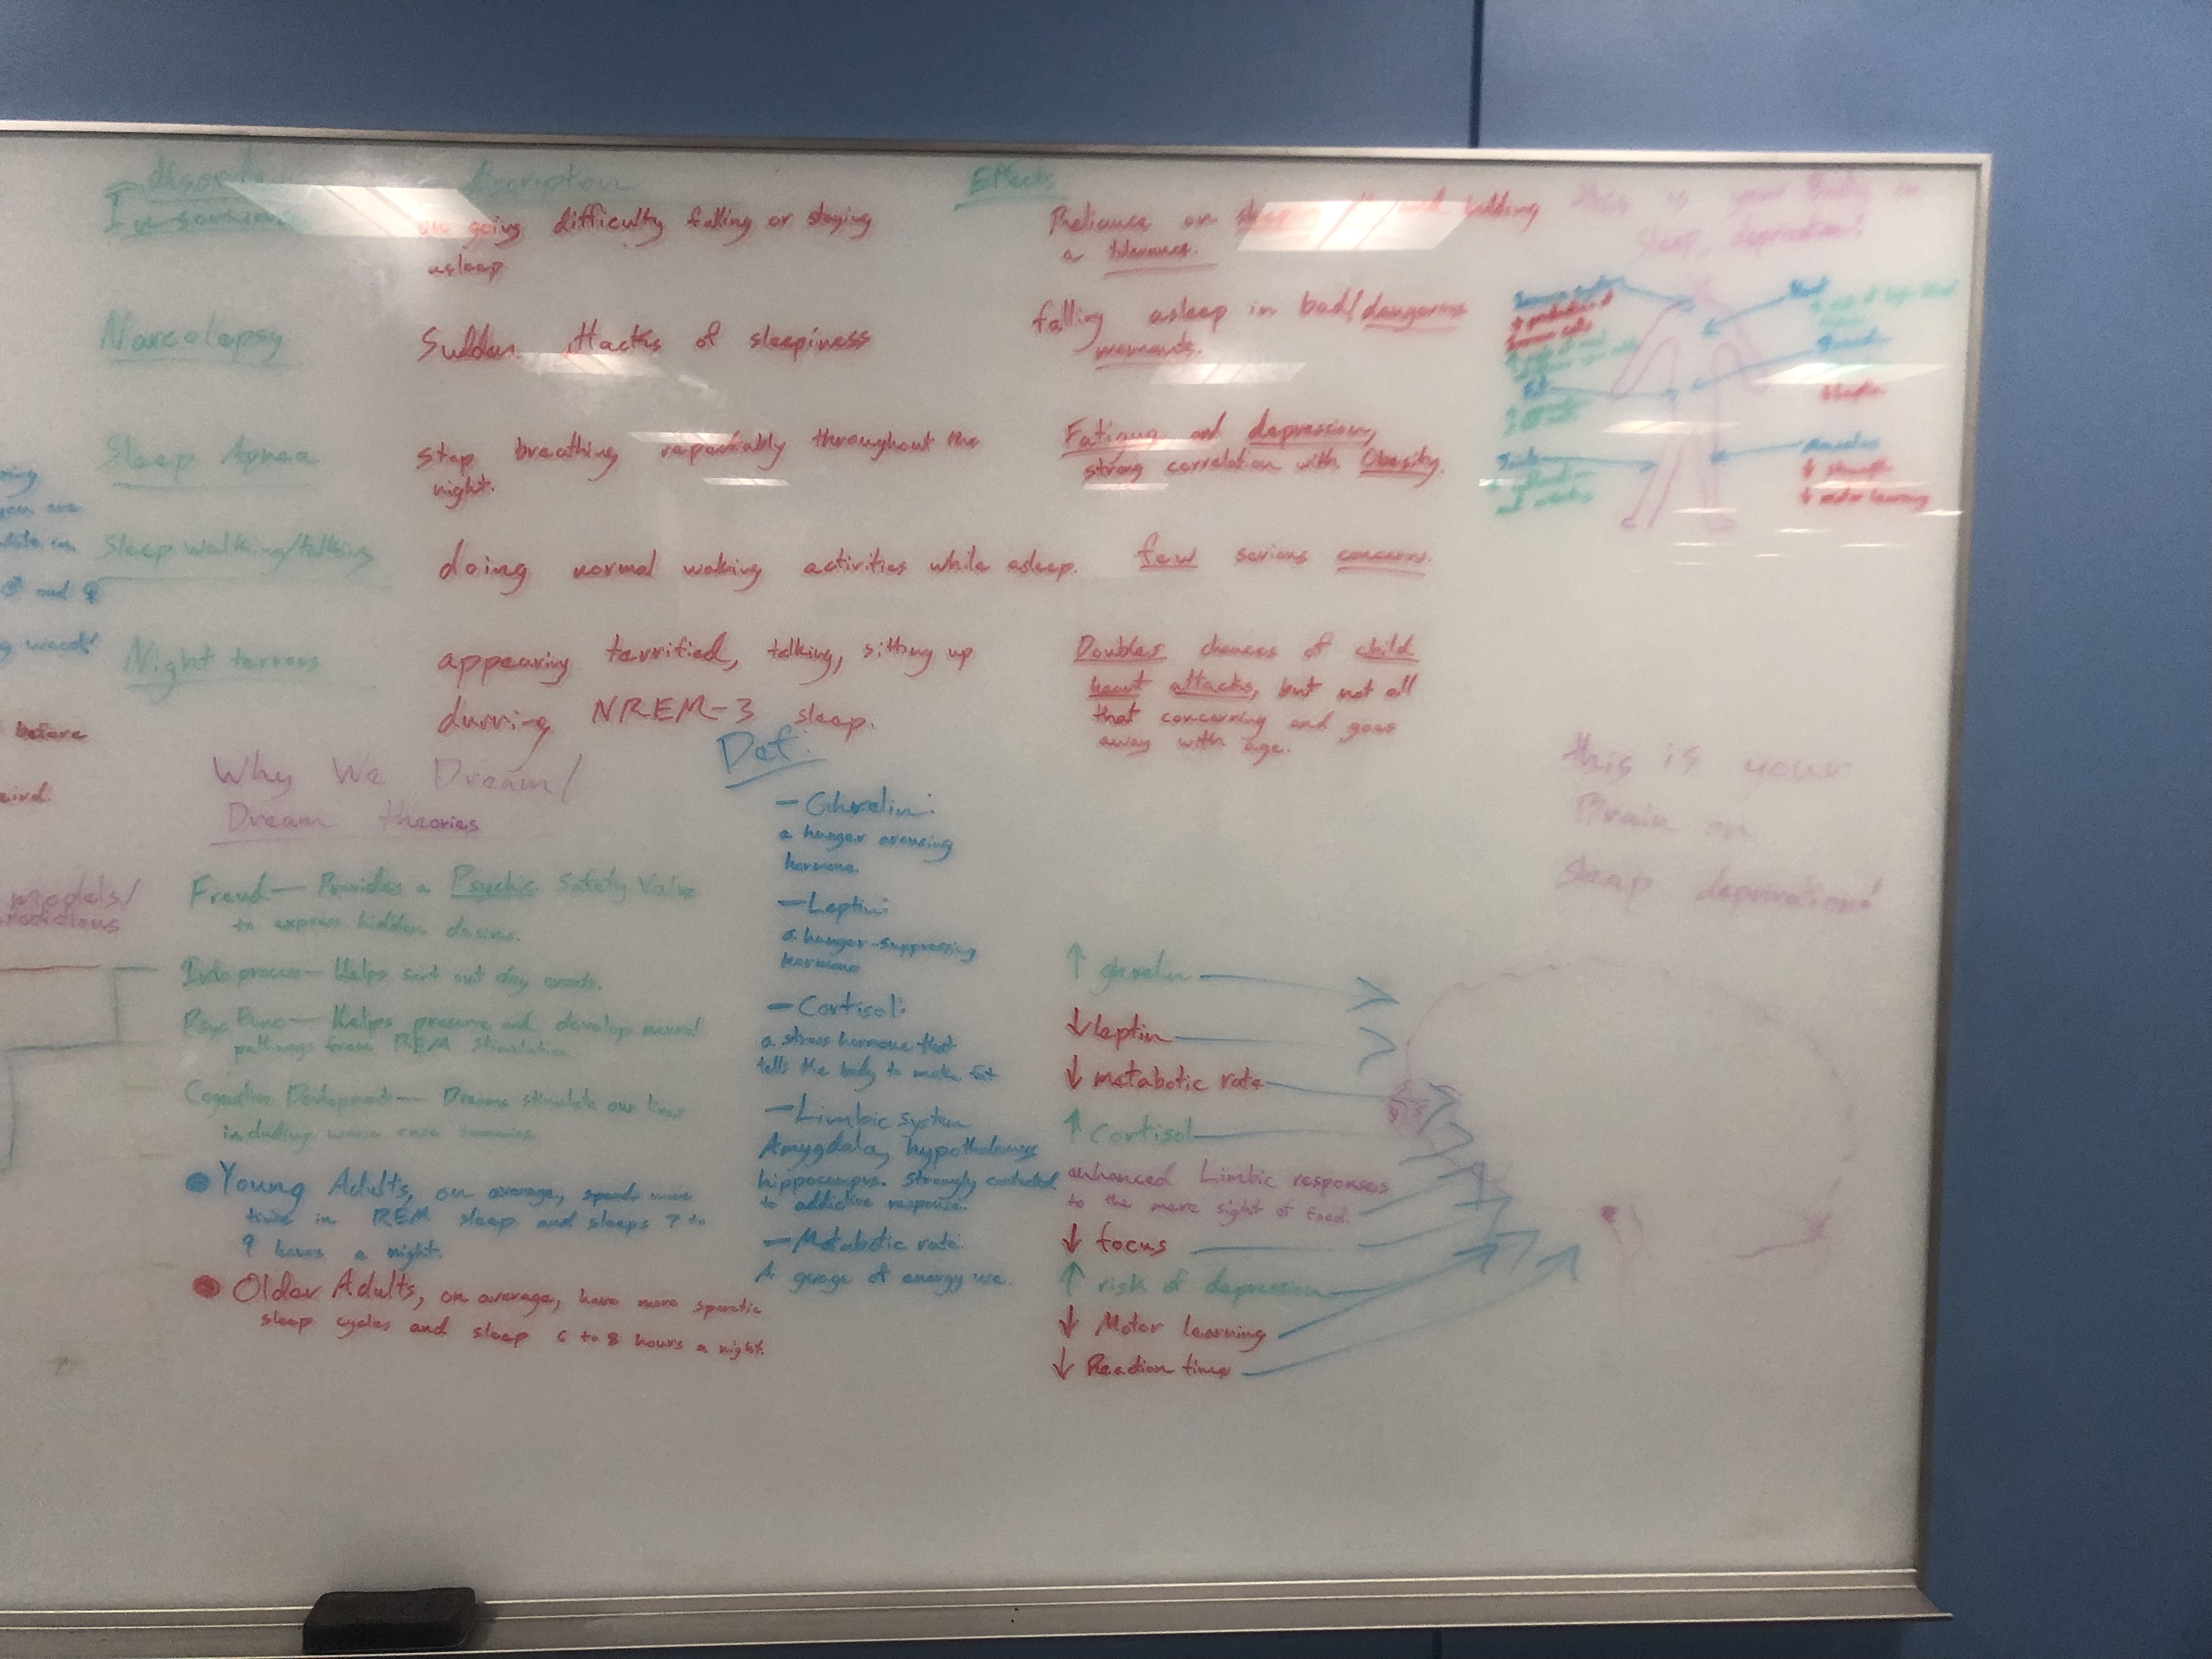 discription
Effects
on going difficulty falling or staying
asleep
Reliance on building
a tolerance.
Narcolapsy
Sudden attacks of sleepiness
falling asleep in bad/dangerous
moments.
Sleep Apnea
stop breathing repeatably throughout the
night.
Fatigue and depression,
strong correlation with Obesity.
Sleep walking/talking
doing normal waking activities while asleep.
few serious concerns.
Night terrors
appearing terrified, talking, sitting up
durring NREM-3 sleep.
Doubles chances of child
heart attacks, but not all
that concerning and goes
away with age.
this is your Body on
Sleep deprivation!
muscles
↓ strength
↓ motor learning
and
before
models/
Why We Dream/
Dream theories
Freud— Provides a Psychic Safety Valve
to express hidden desires.
Helps sort out day events.
Psyc Func— Helps preserve and develop neural
pathways from REM stimulation
Cognative Devlopment— Dreams stimulate our lives
including worse case
Young Adults, on average, spends more
time in REM sleep and sleeps 7 to
9 hours a night.
Older Adults, on average, have more sporatic
sleep cycles and sleep 6 to 8 hours a night.
Def:
— Ghrelin:
a hunger arousing
hormone.
— Leptin:
a hunger-suppressing
hormone
— Cortisol:
a stress hormone that
tells the body to make fat
— Limbic system
Amygdala, hypothalamus
hippocampus. Strongly
to addictive response.
— Metabotic rate:
A guage of energy use.
this is your
Brain on
sleep deprivation!
↑ ghrelin
↓ leptin
↓ metabotic rate
↑ Cortisol
enhanced Limbic responses
to the mere sight of food.
↓ focus
↑ risk of depression
↓ Motor learning
↓ Reaction time